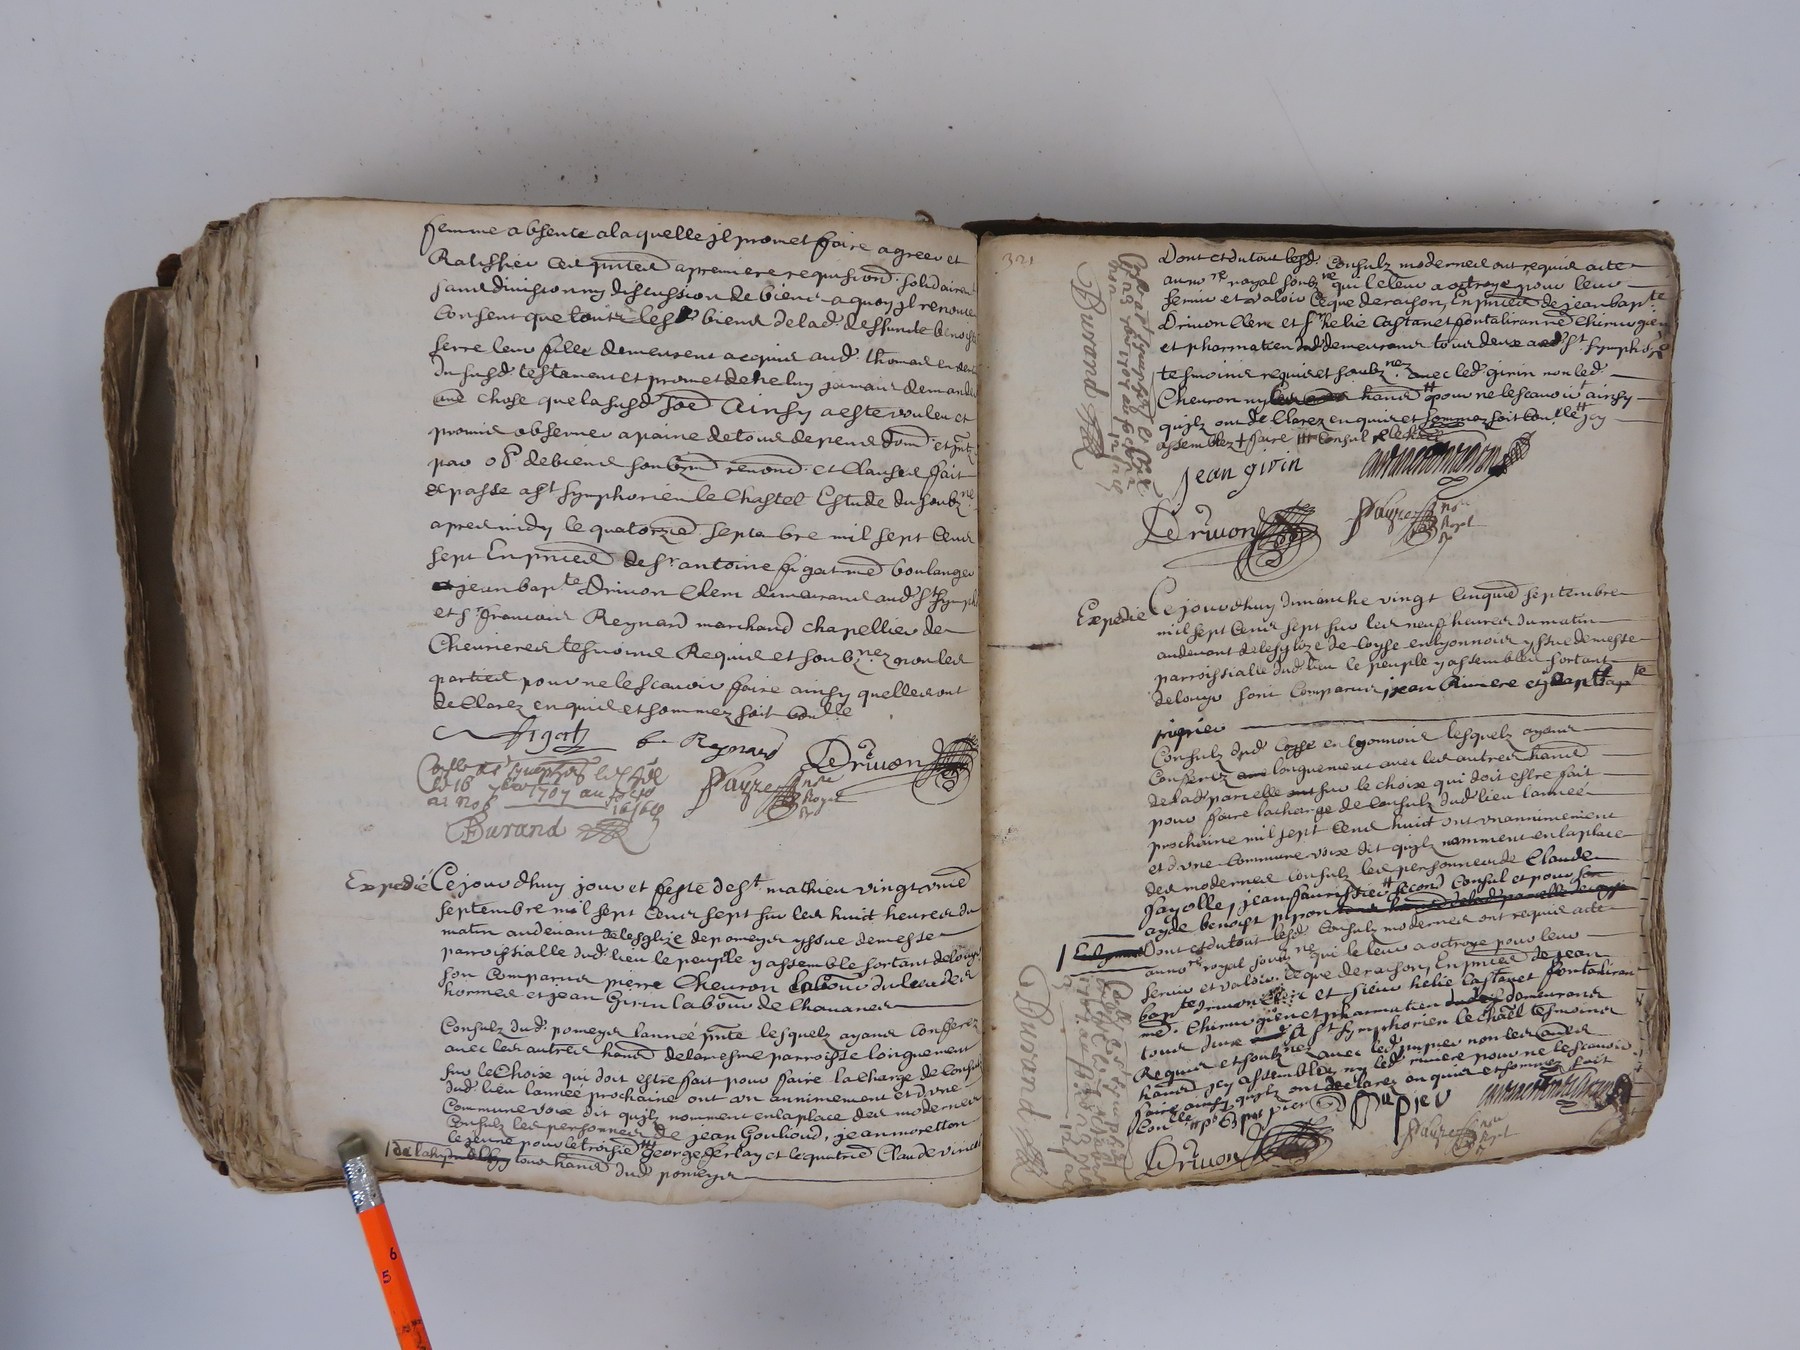 femme absente a laquelle jl promet faire agreer et
Ratiffier ces pntes a premiere requisiond. solidairemt
sans division ny discussion de biens a quoy jl renonce
Consent que tout les biens de lad. deffunte benoiste
serre leur fille demeurent acquis aud. thomas en vertu
du susd. testament et promet de ne luy jamais demander
chose que la susd. soe Ainsy a este voulu et
promis observer a paine de tous despens dom. et jntz
par obl. de biens soubzm. renond. et Clauses fait
et passe a st symphorien le Chastel Estude du soubzne
apres midy le quatorzie septembre mil sept Cens
sept En pnce de sr antoine figat me boulanger
jean bapte Drivon Clerc demeurans aud. st symph
et sr francois Reynard marchand chapellier de
Chevrieres tesmoins Requis et soubznez non les
parties pour ne le scavoir faire ainsy quelles ont
declarez enquis et sommez soit Conlle
figat
f Reynard
Drivon
Payre
nre
Royal
a st symphorien
le 16 7bre 1707 au
Durand
Expedié
Ce jourdhuy jour et feste de st. mathieu vingt unie
septembre mil sept Cens sept sur les huit heures du
matin au devant de lesglize de pomeys yssue de messe
parroissialle dud. lieu le peuple y assemble sortant de longs
son Comparus pierre Chevron labour du lieu des
hormes et jean Girin labour de Chavanes
Consulz dud. pomeys lannée pnte lesquelz ayans Conferez
avec les autres hans de la mesme parroisse longuement
sur le Choix qui doit estre fait pour faire la Charge de Consulz
dud. lieu lannée prochaine ont un annimement et dune
Commune voix dit quilz nomment en la place des modernes
Consulz les personnes de jean Goulioud, jean moretton
le jeune pour le troisie george ferlay et le quatrie Claude vincent
tous hans dud. pomeys
321
Dont et du tout lesd. Consulz modernes ont requis acte
au nore royal soubzne qui le leur a octroye pour leur
servir et valoir Ce que de raison En pnce de jean bapte
Drivon Clerc et sr helie Castanet fontaliran me Chirurgien
et pharmatien demeurans tous deux aud. st symphorien
tesmoins requis et soubznez avec led. girin non led.
Chevron ny hans pour ne le scavoir ainsy
quilz ont declarez enquis et sommez soit Conlle jcy
assemblez faire Consul
jean girin
Castanet fontaliran
Drivon
Payre
nore
Royal
Durand
Expedié
Ce jourdhuy dimanche vingt Cinquie septembre
mil sept Cens sept sur les neuf heures du matin
au devant de lesglize de Coyse en lyonnois yssue de messe
parroissialle dud. lieu le peuple y assemblez sortant
de longs sont Comparus jean Riviere et jean bapte
pupier
Consulz dud. Coyse en lyonnois lesquelz ayans
Conferez longuement avec les autres hans
de lad. parcelle sur le choix qui doit estre fait
pour faire la charge de Consulz dud. lieu lannée
prochaine mil sept Cens huict ont unanimement
et dune Commune voix dit quilz nomment en la place
des modernes Consulz les personnes de Claude
fayolle, jean second Consul et pour son
ayde benoist pipon
Dont et du tout lesd. Consulz modernes ont requis acte
au nore royal soubne qui le leur a octroye pour leur
servir et valoir Ce que de raison En pnce de jean
bapte drivon Clerc et sieur helie Castanet fontaliran
me. Chirurgien et pharmatien demeurans
tous deux a st symphorien le Chastel tesmoins
Requis et soubznez avec led. pupier non les autres
hans jcy assemblez ny led. riviere pour ne le scavoir
faire ainsy quilz ont declarez enquis et sommez soit
Conlle
pupier
Castanet fontaliran
Drivon
Payre
nore
Royal
Durand